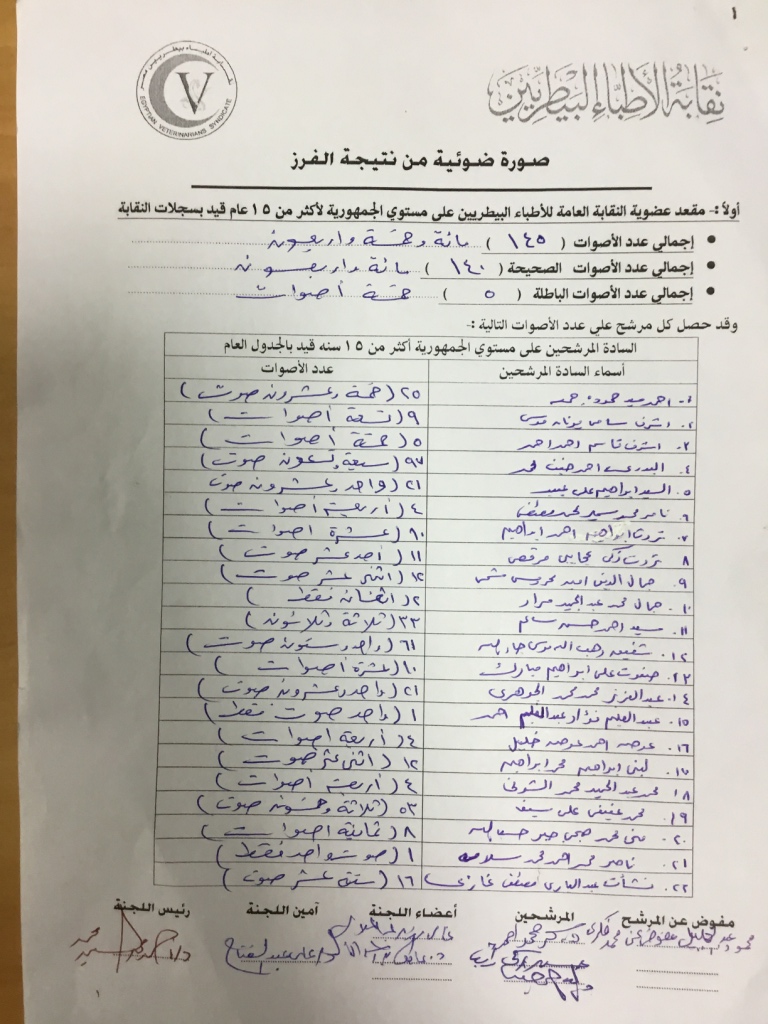 ١
نقابة الأطباء البيطريين
نقابة أطباء بيطريين مصر
V
EGYPTIAN VETERINARIANS SYNDICATE
صورة ضوئية من نتيجة الفرز
أولاً :- مقعد عضوية النقابة العامة للأطباء البيطريين على مستوي الجمهورية لأكثر من ١٥ عام قيد بسجلات النقابة
• إجمالي عدد الأصوات ( ١٤٥ ) مائة وخمسة واربعون
• إجمالي عدد الأصوات الصحيحة ( ١٤٠ ) مائة واربعون
• إجمالي عدد الأصوات الباطلة ( ٥ ) خمسة أصوات
وقد حصل كل مرشح علي عدد الأصوات التالية :-
السادة المرشحين على مستوي الجمهورية أكثر من ١٥ سنه قيد بالجدول العام
أسماء السادة المرشحين عدد الأصوات
١- احمد حموده ٢٥ ( خمسة وعشرون صوت )
٢- اشرف سامى يونان موسى ٩ ( تسعة أصوات )
٣- اشرف قاسم احمد احمد ٥ ( خمسة أصوات )
٤- البدرى احمد محمد ٩٧ ( سبعة وتسعون صوت )
٥- السيد ابراهيم على ٢١ ( واحد وعشرون صوت
٦- تامر محمد سيد مصطفى ٤ ( أربعة أصوات )
٧- ثروت ابراهيم احمد ابراهيم ١٠ ( عشرة اصوات )
٨- ثروت زكى مرقص ١١ ( أحد عشر صوت )
٩- جمال الدين ١٢ ( اثنى عشر صوت )
١٠- جمال محمد عبد الحميد مراد ٢ ( اثنان فقط )
١١- سيد احمد حسن سالم ٣٣ ( ثلاثة وثلاثون )
١٢- شفيق وهب الله موسى ٦١ ( واحد وستون صوت )
١٣- صفوت على ابراهيم مبارك ١٠ ( عشرة أصوات )
١٤- عبد العزيز محمد محمد الجوهرى ٢١ ( واحد وعشرون صوت )
١٥- عبد العليم فؤاد عبد العليم احمد ١ ( واحد صوت فقط )
١٦- عوض احمد عوض خليل ٤ ( أربعة اصوات )
١٧- لبنى ابراهيم محمد ابراهيم ١٢ ( اثنى عشر صوت )
١٨- محمد عبد الحميد محمد الشوى ٤ ( أربعة أصوات )
١٩- محمد عفيفى على سيف ٥٣ ( ثلاثة وخمسون صوت )
٢٠- منى محمد صبحى ٨ ( ثمانية اصوات )
٢١- ناصر محمد احمد محمد سلامه ١ ( صوت واحد فقط )
٢٢- نشأت عبد البارى مصطفى غازى ١٦ ( ستة عشر صوت )
مفوض عن المرشح المرشحين أعضاء اللجنة آمين اللجنة رئيس اللجنة
١